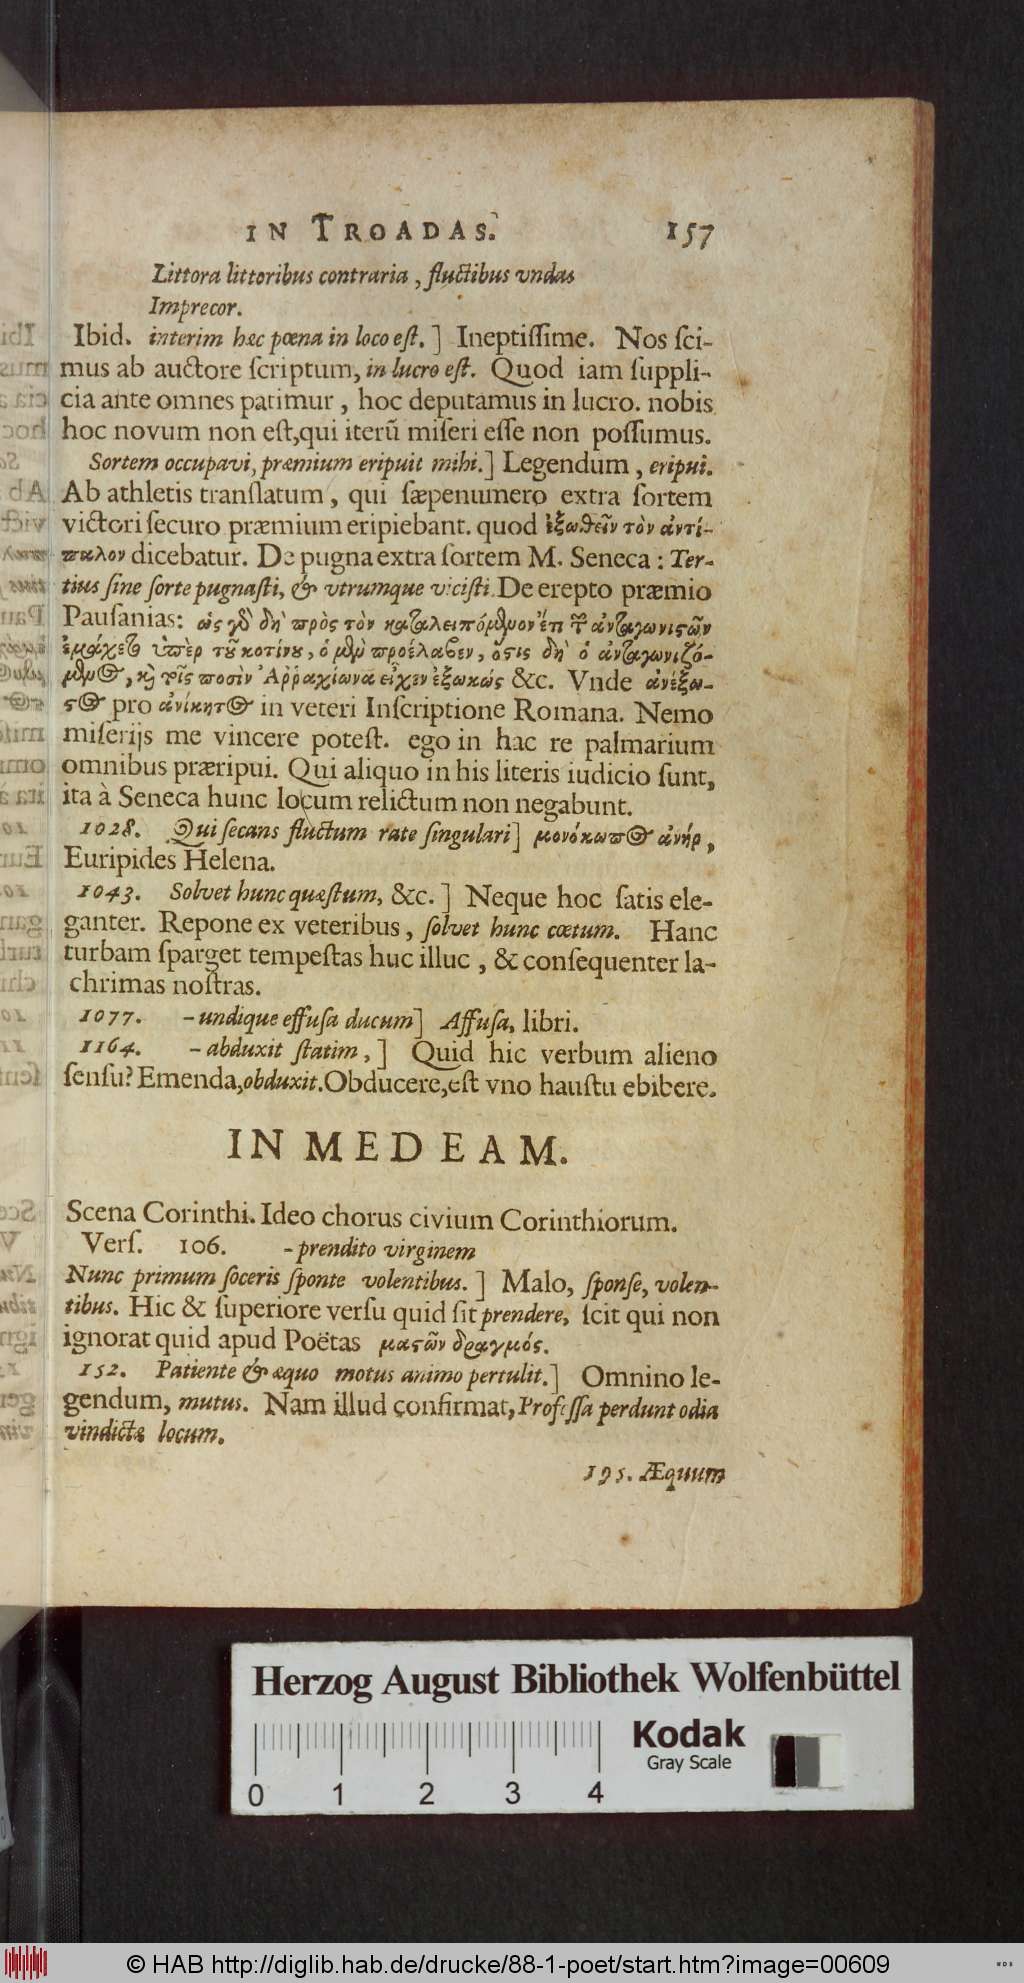 IN TROADAS. 157
Littora littoribus contraria, fluctibus vndas
Imprecor.
Ibid. interim hæc pœna in loco est.] Ineptissime. Nos sci-
mus ab auctore scriptum, in lucro est. Quod iam suppli-
cia ante omnes patimur, hoc deputamus in lucro. nobis
hoc novum non est, qui iterũ miseri esse non possumus.
Sortem occupavi, præmium eripuit mihi.] Legendum, eripui.
Ab athletis translatum, qui sæpenumero extra sortem
victori securo præmium eripiebant. quod ἐξωθεῖν τὸν ἀντί-
παλον dicebatur. De pugna extra sortem M. Seneca: Ter-
tius sine sorte pugnasti, & vtrumque vicisti. De erepto præmio
Pausanias: ὡς γὸ δὴ πρὸς τὸν καταλειπόμενον ἔπι τῶν ἀνταγωνιστῶν
ἐμάχετο ὑπὲρ τοῦ κοτίνου, ὁ μὲν προέλαβεν, ὅστις δὴ ὁ ἀνταγωνιζό-
μενος, καὶ τοῖς ποσὶν Ἀῤῥαχίωνα εἶχεν ἐξωκώς &c. Vnde ἀνέξω-
στος pro ἀνίκητος in veteri Inscriptione Romana. Nemo
miserijs me vincere potest. ego in hac re palmarium
omnibus præripui. Qui aliquo in his literis iudicio sunt,
ita à Seneca hunc locum relictum non negabunt.
1028. Qui secans fluctum rate singulari] μονόκωπος ἀνήρ,
Euripides Helena.
1043. Solvet hunc quæstum, &c.] Neque hoc satis ele-
ganter. Repone ex veteribus, solvet hunc cœtum. Hanc
turbam sparget tempestas huc illuc, & consequenter la-
chrimas nostras.
1077. - undique effusa ducum] Affusa, libri.
1164. - abduxit statim,] Quid hic verbum alieno
sensu? Emenda, obduxit. Obducere, est vno haustu ebibere.
IN MEDEAM.
Scena Corinthi. Ideo chorus civium Corinthiorum.
Vers. 106. - prendito virginem
Nunc primum soceris sponte volentibus.] Malo, sponse, volen-
tibus. Hic & superiore versu quid sit prendere, scit qui non
ignorat quid apud Poëtas μαστῶν δραγμός.
152. Patiente & æquo motus animo pertulit.] Omnino le-
gendum, mutus. Nam illud confirmat, Professa perdunt odia
vindictæ locum.
195. Æquum
Herzog August Bibliothek Wolfenbüttel
Kodak
Gray Scale
0 1 2 3 4
© HAB http://diglib.hab.de/drucke/88-1-poet/start.htm?image=00609